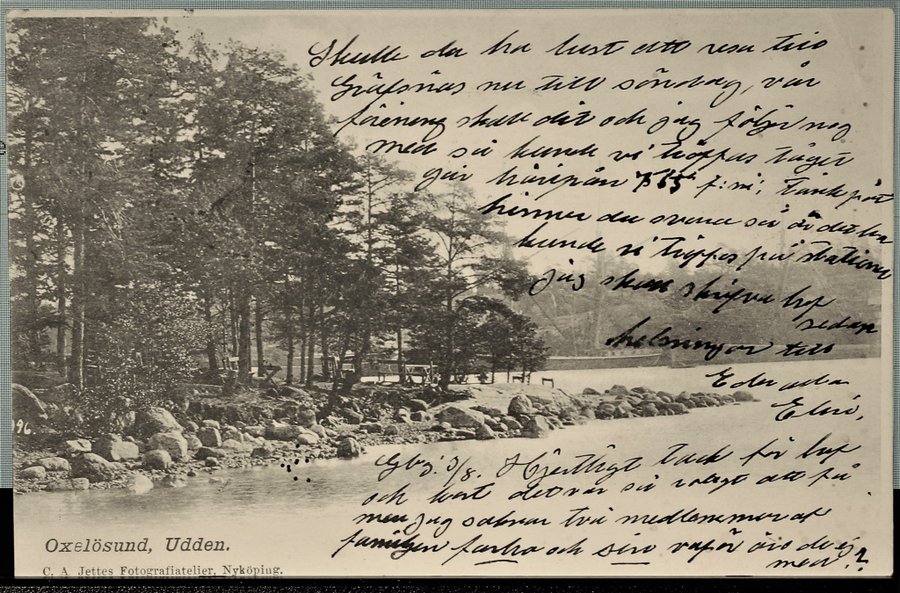 Skulle du ha lust att resa till
Gräfsnäs nu till söndag, vår
förening skall dit och jag följer nog
med så kunde vi träffas tåget
går härifrån 7 f:m;
hinner du svara så
kunde vi träffas på stationen
jag skall skrifva bref
sedan
helsningar till
Eder alla
Elin,
3/8. Hjertligt tack för bref
och kort det var så roligt att få
men jag saknar två medlemmar af
familjen och
med?
196
Oxelösund, Udden.
C. A. Jettes Fotografiatelier, Nyköping.